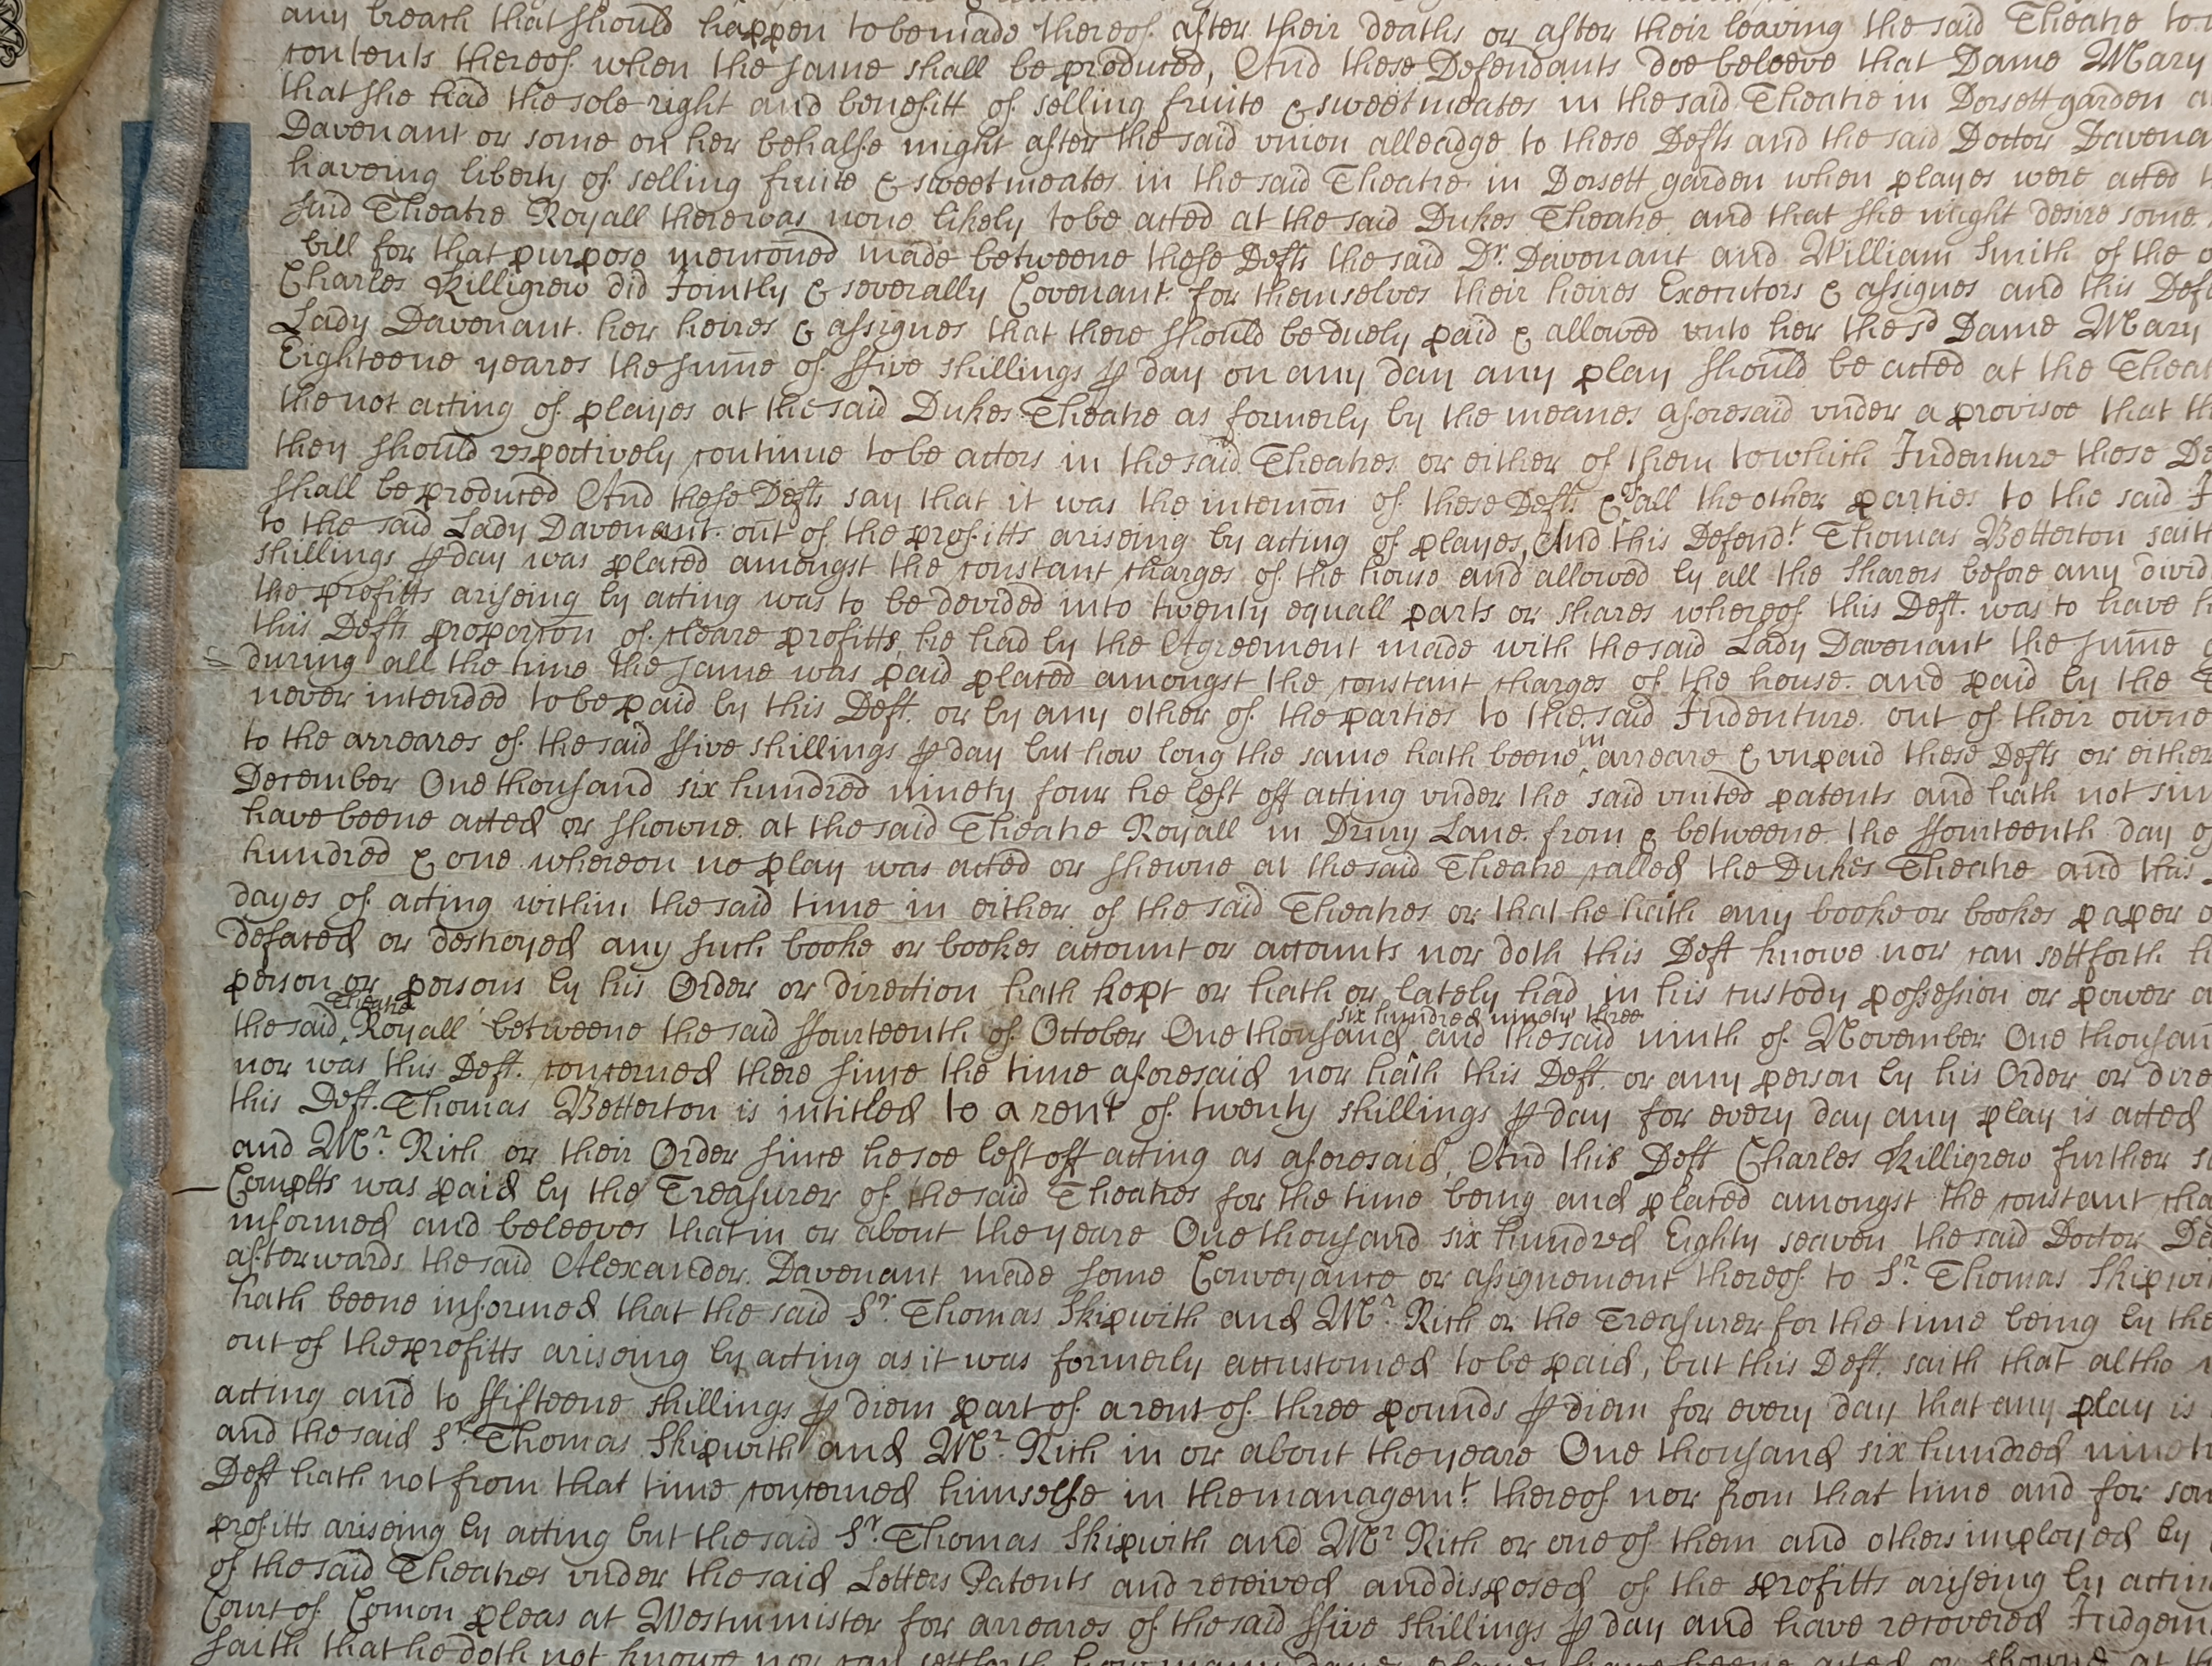 any breach that should happen to be made thereof after their deaths or after their leaving the said Theatre to
contents thereof when the same shall be produced, And these Defendants doe beleeve that Dame Mary
that she had the sole right and benefitt of selling fruite & sweetmeates in the said Theatre in Dorsett garden
Davenant or some on her behalfe might after the said vnion alleadge to these Defts and the said Doctor Davena
haveing liberty of selling fruite & sweetmeates in the said Theatre in Dorsett garden when playes were acted
said Theatre Royall there was none likely to be acted at the said Dukes Theatre and that she might desire some
bill for that purpose mencōned made betweene these Defts the said Dr. Davenant and William Smith of the
Charles Killigrew did Jointly & severally Covenant for themselves their heires Executors & assignes and this Deft
Lady Davenant her heires & assignes that there should be duely paid & allowed vnto her the sd Dame Mary
Eighteene yeares the sum̄e of ffive shillings ꝑ day on any day any play should be acted at the Theat
the not acting of playes at the said Dukes Theatre as formerly by the meanes aforesaid vnder a provisoe that th
they should respectively continue to be actors in the said Theatres or either of them to which Indenture these De
shall be produced And these Defts say that it was the intencōn of these Defts & of all the other parties to the said I
to the said Lady Davenant out of the profitts ariseing by acting of playes, And this Defendt. Thomas Betterton saith
shillings ꝑ day was placed amongst the constant charges of the house and allowed by all the sharers before any divid
the profitts ariseing by acting was to be devided into twenty equall parts or shares whereof this Deft. was to have
this Defts proporcōn of cleare profitts, he had by the Agreement made with the said Lady Davenant the sum̄e
during all the time the same was paid placed amongst the constant charges of the house and paid by the
never intended to be paid by this Deft. or by any other of the parties to the said Indenture out of their owne
to the arreares of the said ffive shillings ꝑ day but how long the same hath beene in arreare & vnpaid these Defts or either
December One thousand six hundred ninety four he left off acting vnder the said vnited patents and hath not sin
have beene acted or showne at the said Theatre Royall in Drury Lane from & betweene the ffourteenth day o
hundred & one whereon no play was acted or shewne at the said Theatre called the Dukes Theatre and this
dayes of acting within the said time in either of the said Theatres or that he hath any booke or bookes paper o
defaced or destroyed any such booke or bookes account or accounts nor doth this Deft knowe nor can settforth
person or persons by his Order or direction hath kept or hath or lately had in his custody possession or power
the said Theatre Royall betweene the said ffourteenth of October One thousand six hundred ninety three and the said ninth of November One thousan
nor was this Deft. concerned there since the time aforesaid nor hath this Deft. or any person by his Order or dire
this Deft. Thomas Betterton is intitled to a rent of twenty shillings ꝑ day for every day any play is acted
and Mr. Rich or their Order since he soe left off acting as aforesaid, And this Deft Charles Killigrew further s
Complts was paid by the Treasurer of the said Theatres for the time being and placed amongst the constant cha
informed and beleeves that in or about the yeare One thousand six hundred Eighty seaven the said Doctor Da
afterwards the said Alexander Davenant made some Conveyance or assignement thereof to Sr. Thomas Skipwi
hath beene informed that the said Sr. Thomas Skipwith and Mr. Rich or the Treasurer for the time being by the
out of the profitts ariseing by acting as it was formerly accustomed to be paid, but this Deft. saith that altho
acting and to ffifteene shillings ꝑ diem part of a rent of three pounds ꝑ diem for every day that any play is
and the said Sr. Thomas Skipwith and Mr. Rich in or about the yeare One thousand six hundred ninet
Deft hath not from that time concerned himselfe in the managemt. thereof nor from that time and for som
profitts ariseing by acting but the said Sr. Thomas Skipwith and Mr. Rich or one of them and others imployed by
of the said Theatres vnder the said Letters Patents and received and disposed of the profitts ariseing by acting
Court of Com̄on pleas at Westminister for arreares of the said ffive shillings ꝑ day and have recovered Judgem
saith that he doth not knowe nor can settforth how many dayes playes have beene acted or showne at